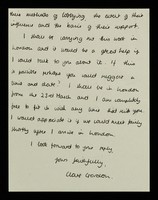 these methods of lobbying, the extent of their
influence and the basis of their support.
I shall be carrying out this work in
London and it would be a great help if
I could talk to you about it. If this
is possible perhaps you could suggest a
time and date? I shall be in London
from the 22nd March and I am completely
free to fit in with any time that suits you.
I would appreciate it if we could meet fairly
shortly after I arrive in London.
I look forward to your reply,
Yours faithfully,
Clare